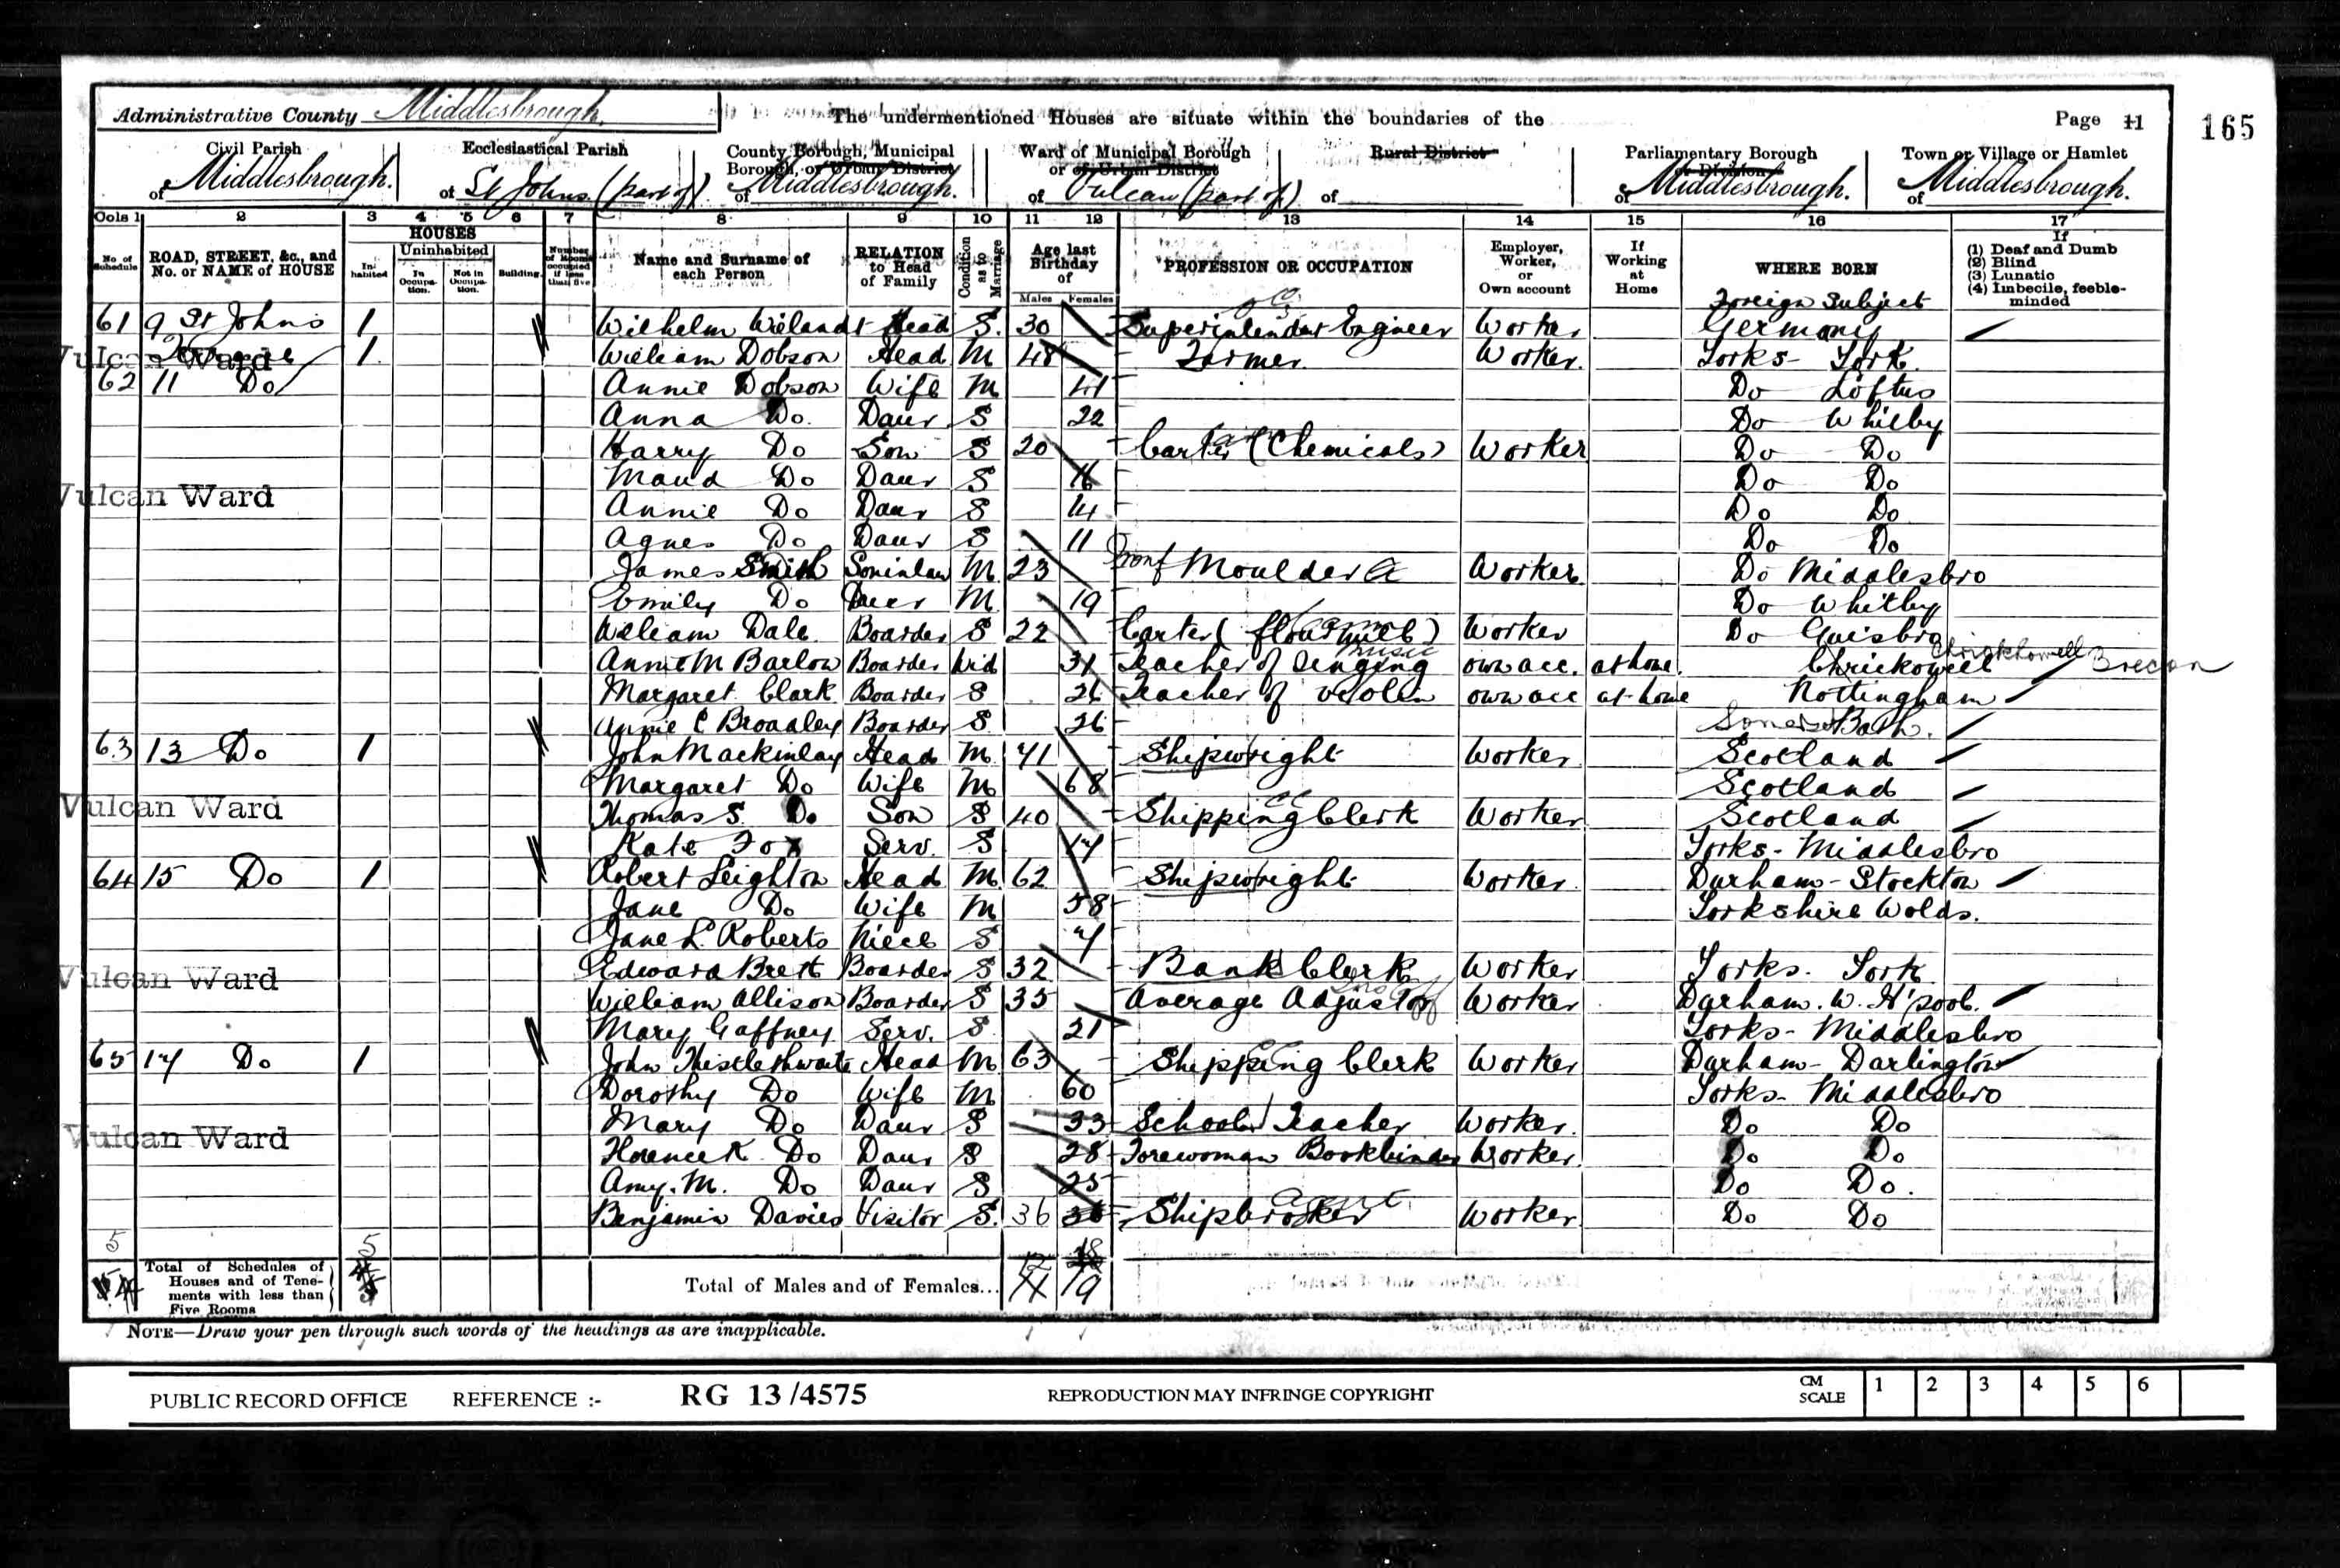 Administrative County Middlesbrough. The undermentioned Houses are situate within the boundaries of the Page 11 165
Civil Parish Ecclesiastical Parish County Borough, Municipal Borough, or Urban District Ward of Municipal Borough or of Urban District Rural District Parliamentary Borough or Division Town or Village or Hamlet
of Middlesbrough. of St Johns (part of). of Middlesbrough. of Vulcan (part of) of of Middlesbrough. of Middlesbrough.
Cols 1 2 3 4 5 6 7 8 9 10 11 12 13 14 15 16 17
No. of Schedule ROAD, STREET, &c., and No. or NAME of HOUSE HOUSES Inhabited Uninhabited In Occupation. Not in Occupation. Building. Number of Rooms occupied if less than five Name and Surname of each Person RELATION to Head of Family Condition as to Marriage Age last Birthday of Males Females PROFESSION OR OCCUPATION Employer, Worker, or Own account If Working at Home WHERE BORN If (1) Deaf and Dumb (2) Blind (3) Lunatic (4) Imbecile, feeble-minded
Foreign Subject
61 9 St Johns 1 Wilhelm Wielandt Head S. 30 Superintendent Engineer Worker Germany
Vulcan Ward 1. William Dobson Head M 48 Worker. Yorks - York.
62 11 Do Annie Dobson Wife M 41 Do Loftus
Anna Do. Daur S 22 Do Whitby
Harry Do Son S 20 Carter (Chemicals) Worker Do Do
Maud Do Daur S 16 Do Do
Vulcan Ward Annie Do Daur S 14 Do Do
Agnes Do Daur S 11 Do Do
James Smith Soninlaw M. 23 Iron Moulder Worker. Do Middlesbro
Emily Do Daur M. 19 Do Whitby
William Dale. Boarder S 22 Carter (flour mill) Worker Do Guisbro
Annie M Barlow Boarder Wid 31 Teacher of Singing music own acc. at home. Chrickowell Crickhowell Brecon
Margaret Clark Boarder S 26 Teacher of violin own acc at home Nottingham
Annie C Broadley Boarder S 26 Somerset Bath.
63 13 Do 1 John Mackinlay Head M. 71 Shipwright Worker Scotland
Margaret Do Wife M. 68 Scotland
Vulcan Ward Thomas S. Do Son S 40 Shipping Clerk Worker Scotland
Kate Fox Serv. S 17 Yorks - Middlesbro
64 15 Do 1 Robert Leighton Head M. 62 Shipwright Worker. Durham - Stockton
Jane Do Wife M 58 Yorkshire Wolds.
Jane L. Roberts Niece S 7
Vulcan Ward Edward Brett Boarder S 32 Bank Clerk Worker Yorks. York
William Allison Boarder S 35 Average Adjustor Worker Durham. W. H'pool.
Mary Gaffney Serv. S 21 Yorks - Middlesbro
65 17 Do 1 John Thistlethwaite Head M. 63 Shipping Clerk Worker Durham - Darlington
Dorothy Do Wife M. 60 Yorks - Middlesbro
Mary Do Daur S 33 School Teacher Worker. Do Do
Vulcan Ward Florence K. Do Daur S 28 Forewoman Bookbinder Worker. Do Do
Amy. M. Do Daur S 25 Do Do.
Benjamin Davies Visitor S. 36 36 Shipbroker agent Worker. Do Do
5 5 18
Total of Schedules of Houses and of Tenements with less than Five Rooms Total of Males and of Females... 12 11 19
NOTE—Draw your pen through such words of the headings as are inapplicable.
PUBLIC RECORD OFFICE REFERENCE :- RG 13/4575 REPRODUCTION MAY INFRINGE COPYRIGHT CM SCALE 1 2 3 4 5 6